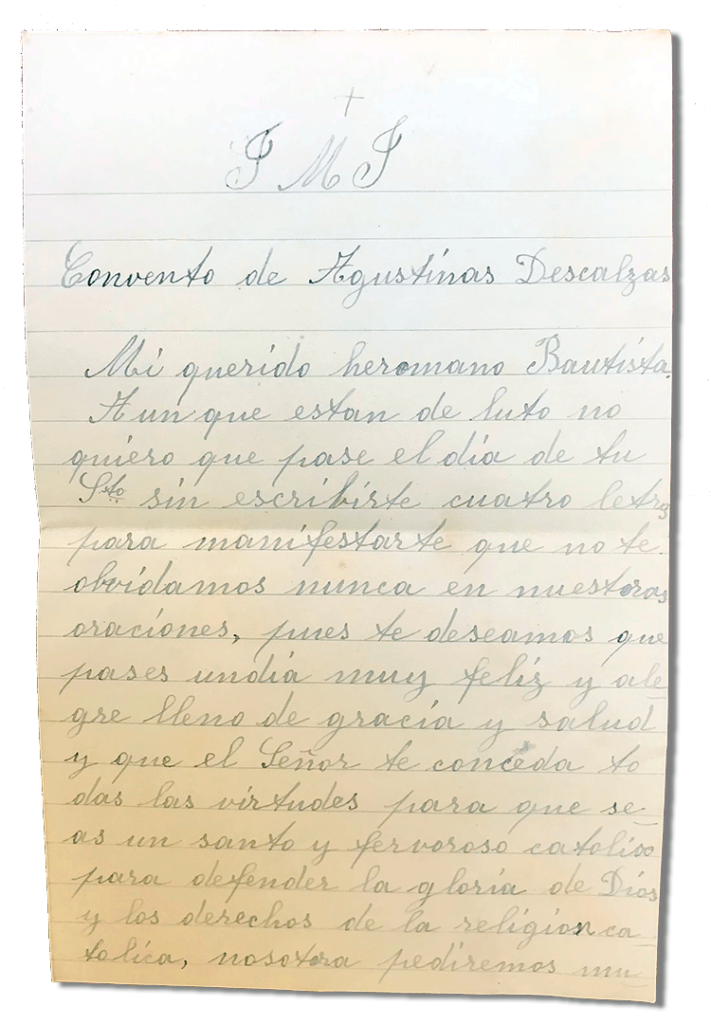 +
J M J
Convento de Agustinas Descalzas
Mi querido heromano Bautista.
Aunque estan de luto no
quiero que pase el dia de tu
Sto sin escribirte cuatro letras
para manifestarte que no te
obvidamos nunca en nuestoras
oraciones, pues te deseamos que
pases undia muy feliz y ale-
gre lleno de gracia y salud
y que el Señor te conceda to
das las virtudes para que se-
as un santo y fervoroso catolico
para defender la gloria de Dios
y los derechos de la religion ca-
tolica, nosotora pediremos mu-